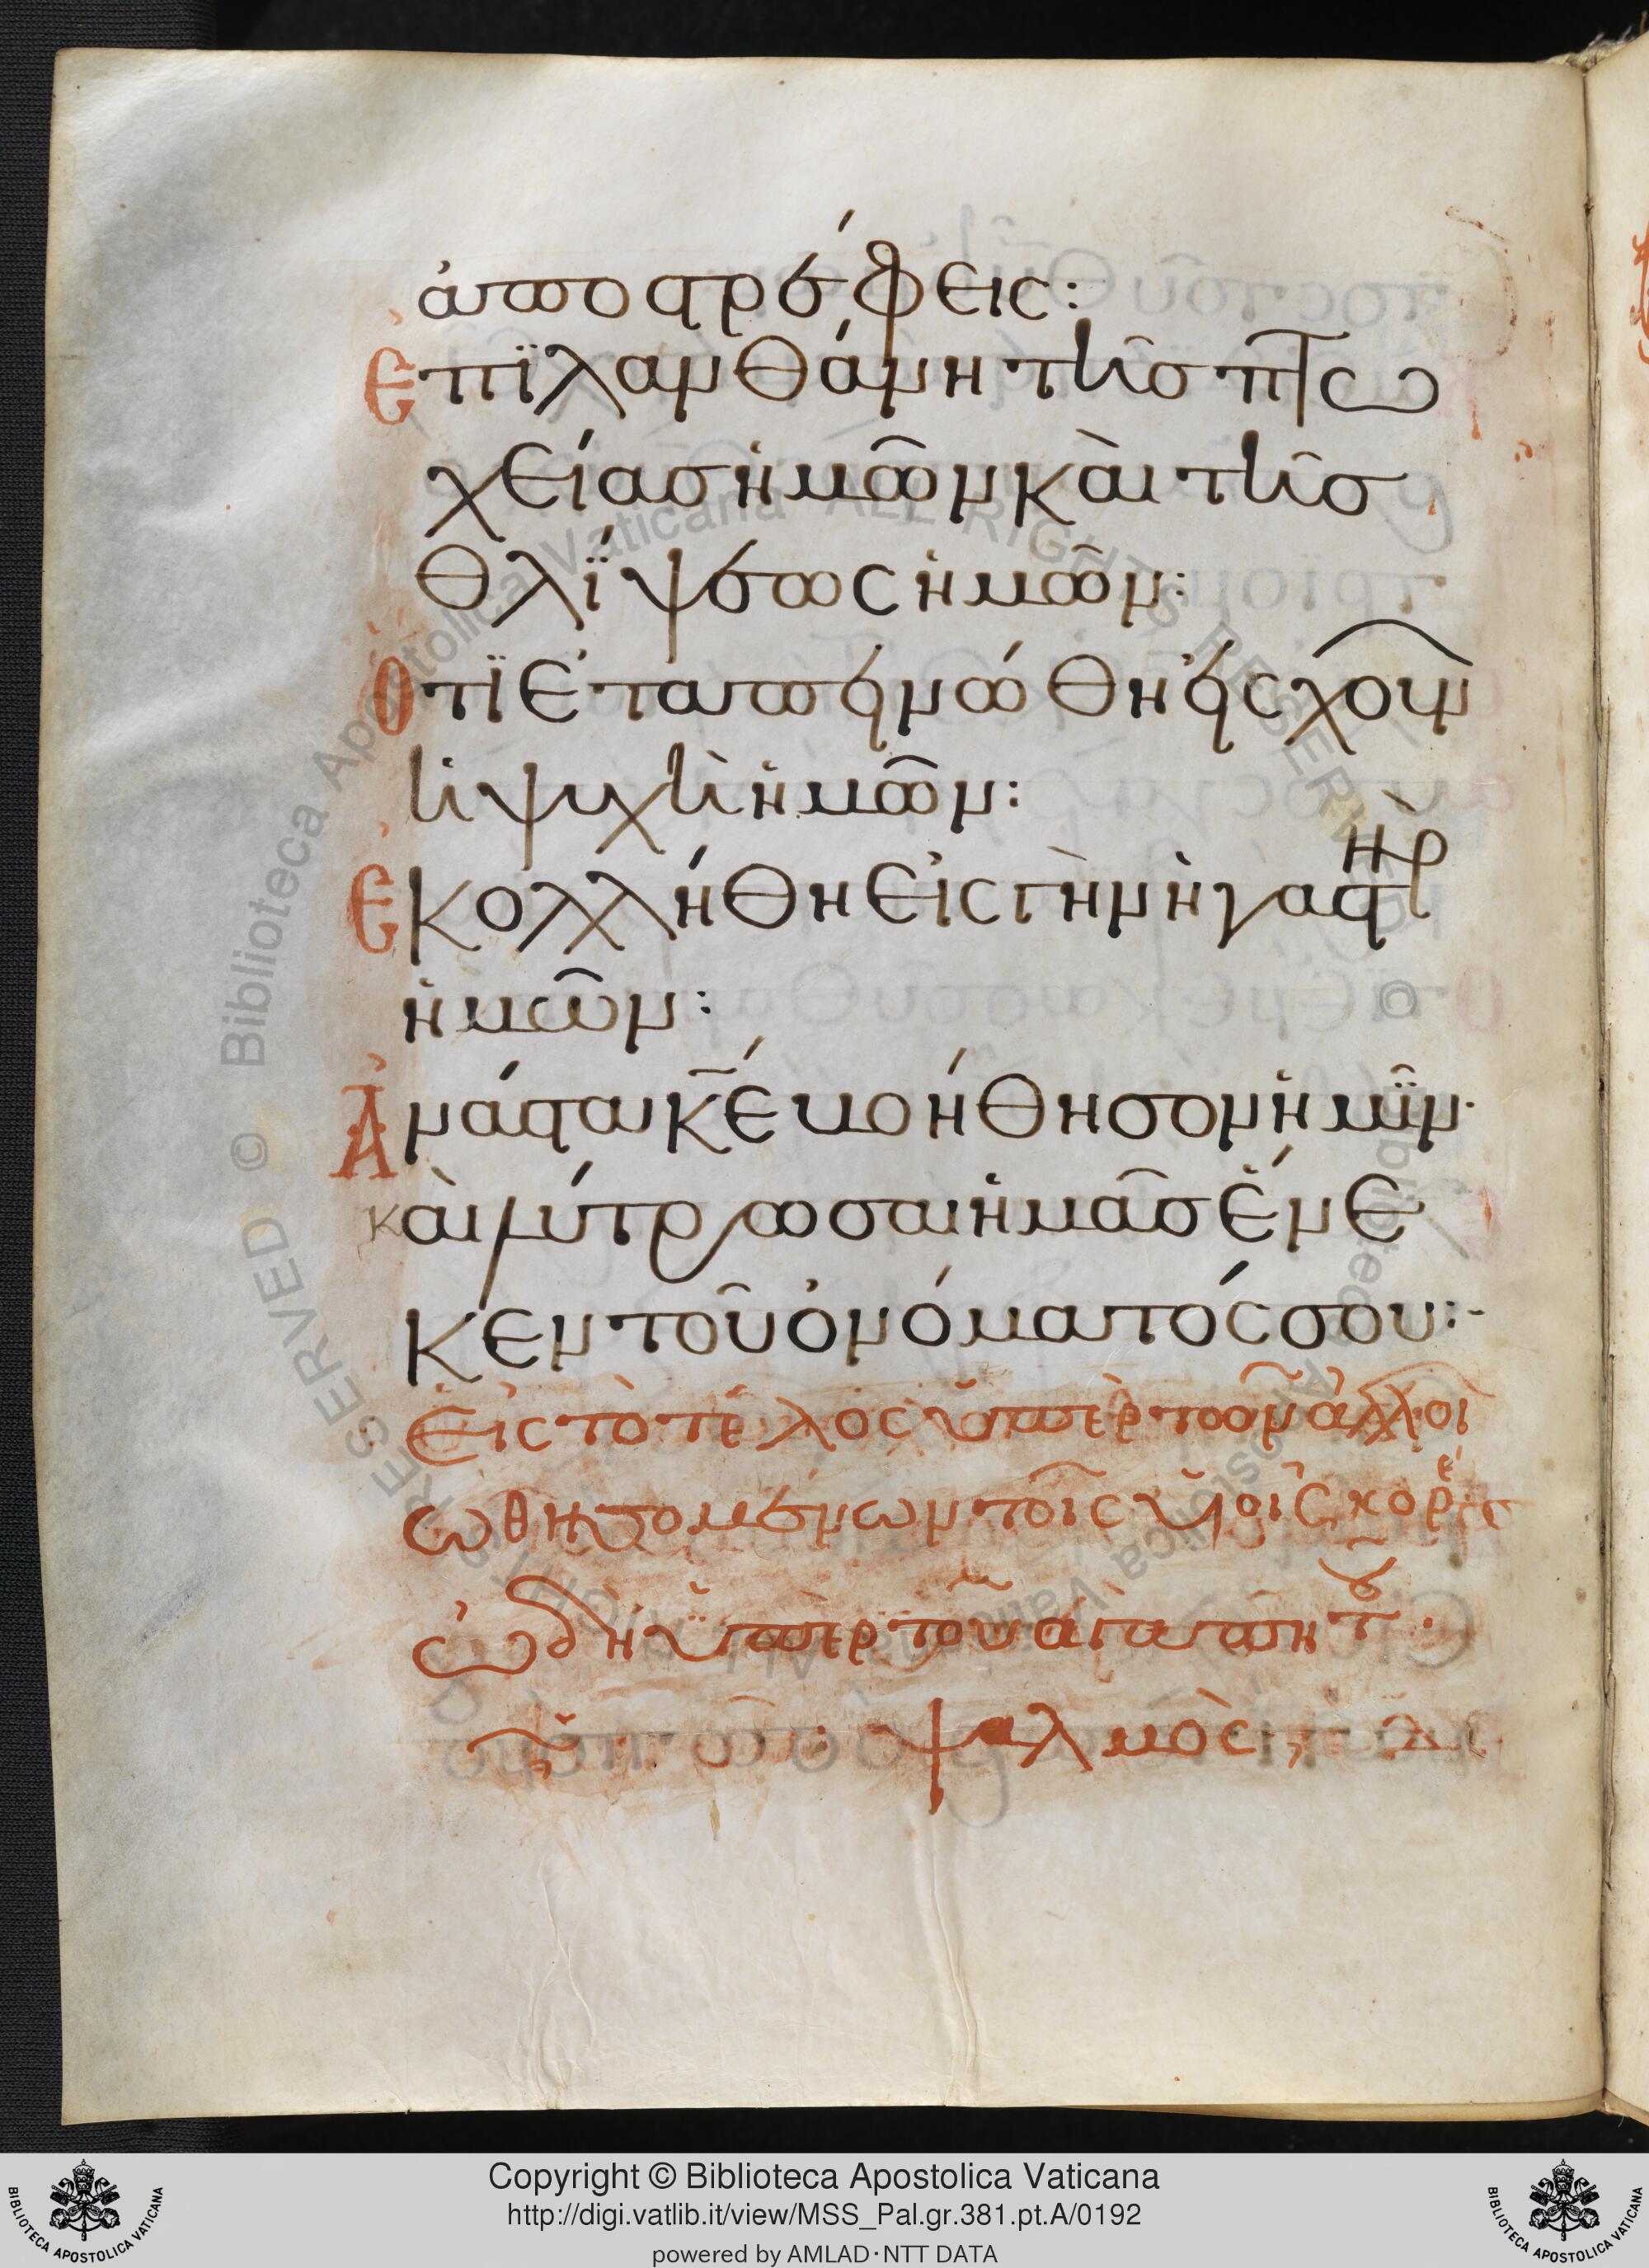 ἀποστρέφεις:
Ἐπϊλανθάνη τῆς πτω
χείας ἡμῶν καὶ τῆς
θλΐψεως ἡμῶν:
Ὅτϊ ἐταπεινώθη εἰς χοῦν
ἡ ψυχὴ ἡμῶν:
Ἐκολλήθη εἰς γῆν ἡ γαστὴρ
ἡμῶν:
Ἀνάστα κ̅ε̅ βοήθησον ἡμῖν·
καὶ λύτρωσαι ἡμᾶς ἕνε
κεν τοῦ ὀνόματός σου:-
Εἰς τὸ τέλος ὑπὲρ τῶν ἀλλοι
ωθησομένων τοῖς υἱοῖς κορέ
ὠδὴ ὑπὲρ τοῦ ἀγαπητοῦ·
ψαλμὸς
Copyright © Biblioteca Apostolica Vaticana
http://digi.vatlib.it/view/MSS_Pal.gr.381.pt.A/0192
powered by AMLAD·NTT DATA
BIBLIOTECA APOSTOLICA VATICANA
BIBLIOTECA APOSTOLICA VATICANA